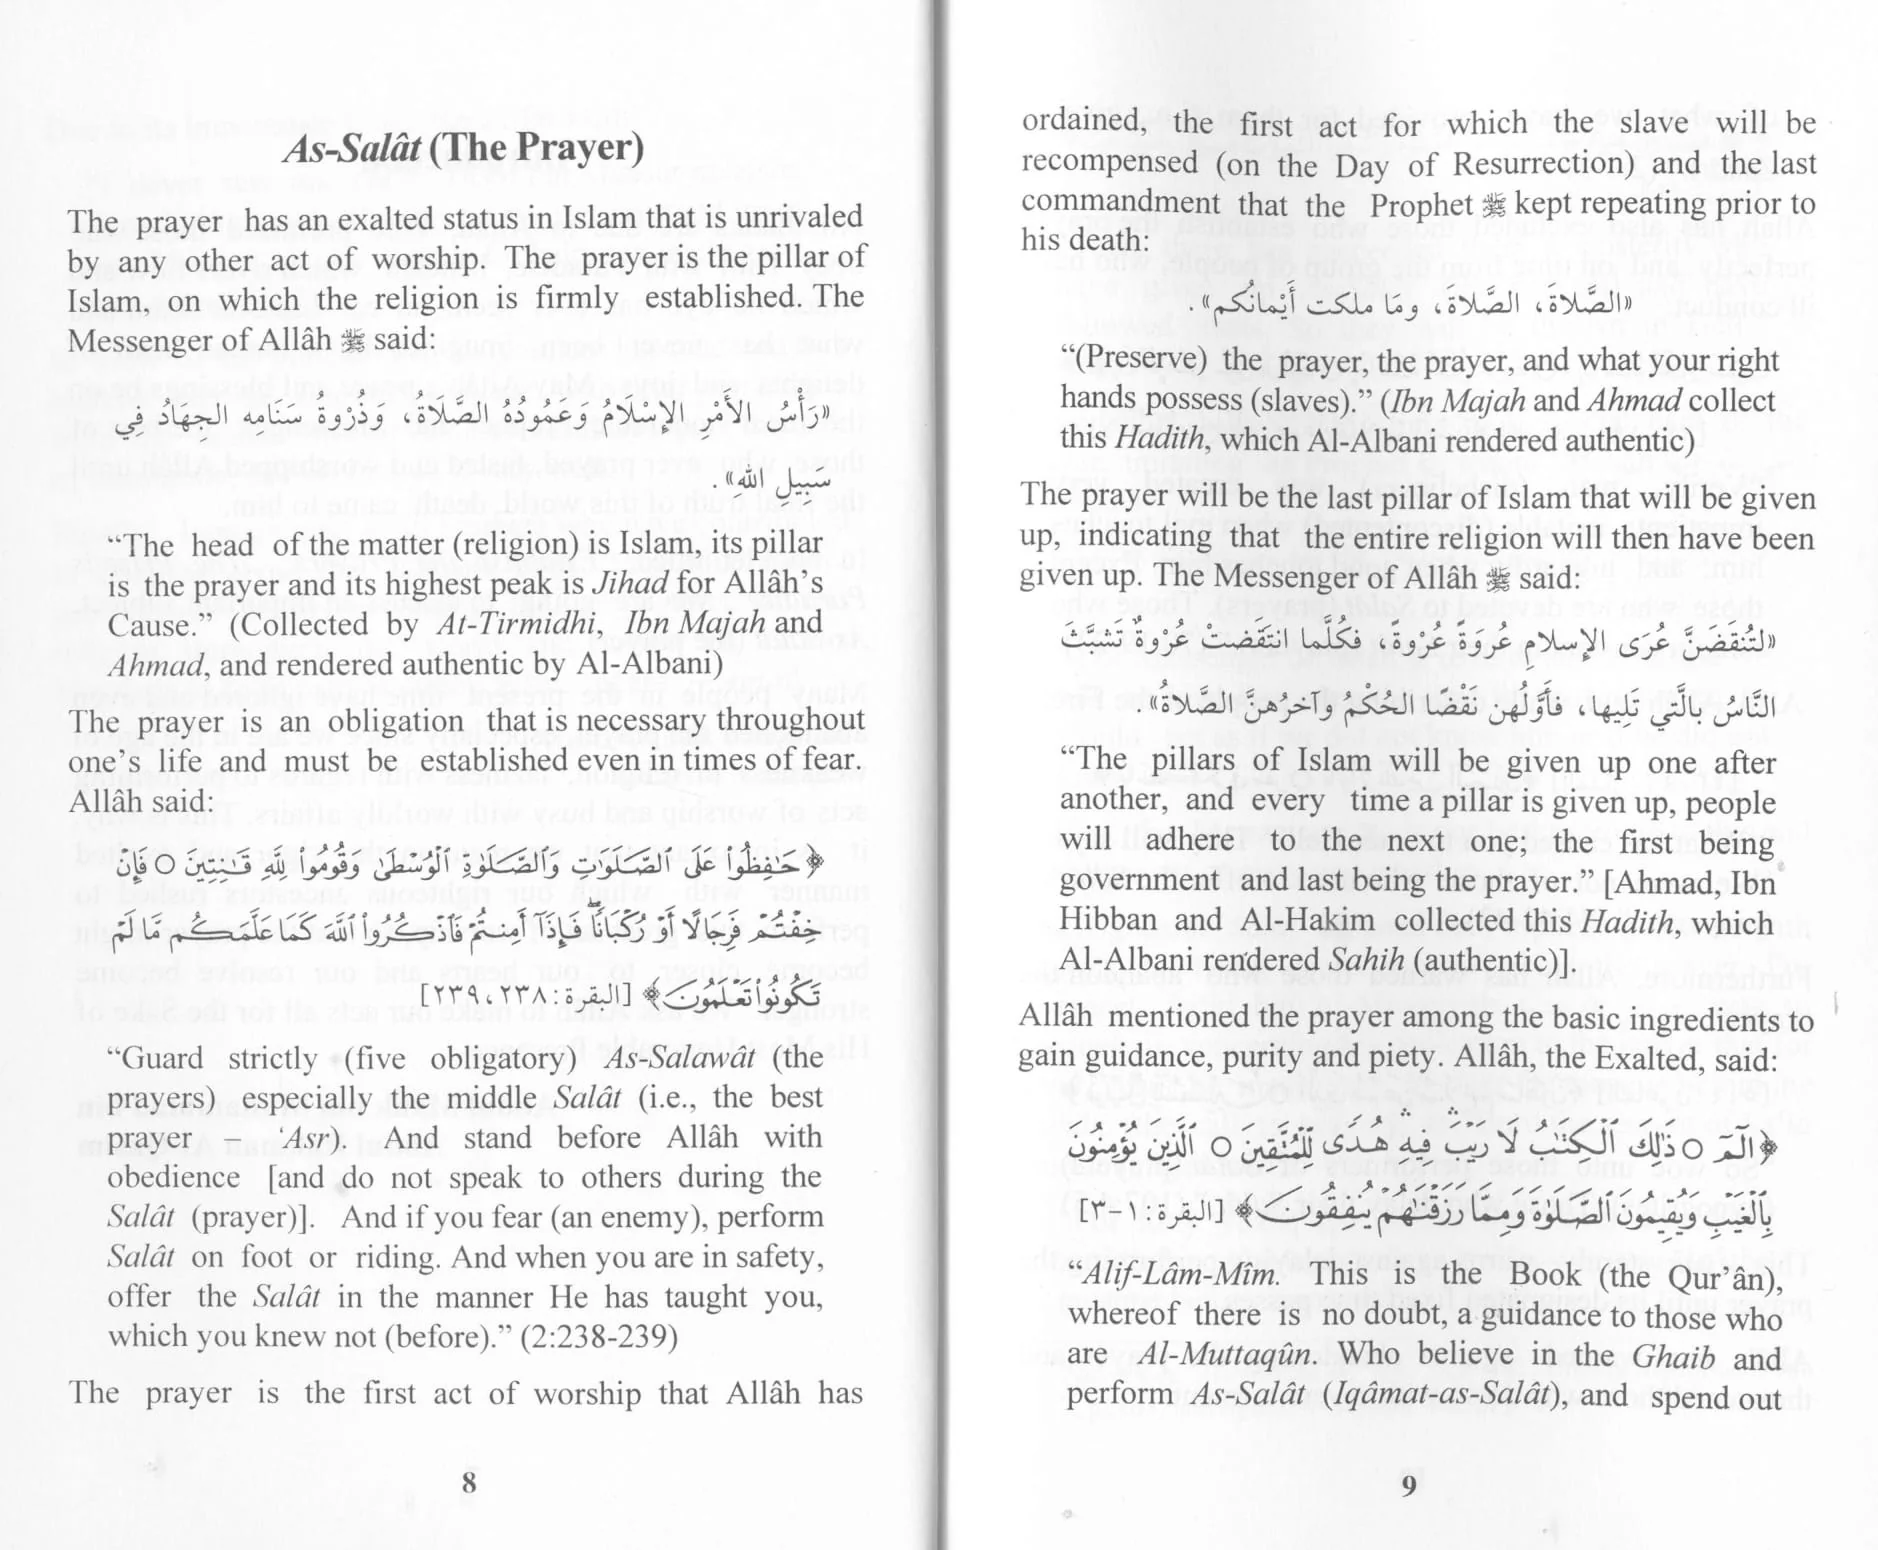 As-Salât (The Prayer)
The prayer has an exalted status in Islam that is unrivaled
by any other act of worship. The prayer is the pillar of
Islam, on which the religion is firmly established. The
Messenger of Allâh ﷺ said:
«رَأْسُ الأَمْرِ الإِسْلَامُ وَعَمُودُهُ الصَّلَاةُ، وَذُرْوةُ سَنَامِهِ الجِهَادُ فِي
سَبِيلِ اللَّهِ».
“The head of the matter (religion) is Islam, its pillar
is the prayer and its highest peak is Jihad for Allâh’s
Cause.” (Collected by At-Tirmidhi, Ibn Majah and
Ahmad, and rendered authentic by Al-Albani)
The prayer is an obligation that is necessary throughout
one’s life and must be established even in times of fear.
Allâh said:
﴿حَٰفِظُواْ عَلَى ٱلصَّلَوَٰتِ وَٱلصَّلَوٰةِ ٱلْوُسْطَىٰ وَقُومُواْ لِلَّهِ قَٰنِتِينَ ○ فَإِنْ
خِفْتُمْ فَرِجَالًا أَوْ رُكْبَانًا ۖ فَإِذَآ أَمِنتُمْ فَٱذْكُرُواْ ٱللَّهَ كَمَا عَلَّمَكُم مَّا لَمْ
تَكُونُواْ تَعْلَمُونَ﴾ [البقرة: ٢٣٨، ٢٣٩]
“Guard strictly (five obligatory) As-Salawât (the
prayers) especially the middle Salât (i.e., the best
prayer – ‘Asr). And stand before Allâh with
obedience [and do not speak to others during the
Salât (prayer)]. And if you fear (an enemy), perform
Salât on foot or riding. And when you are in safety,
offer the Salât in the manner He has taught you,
which you knew not (before).” (2:238-239)
The prayer is the first act of worship that Allâh has
8
ordained, the first act for which the slave will be
recompensed (on the Day of Resurrection) and the last
commandment that the Prophet ﷺ kept repeating prior to
his death:
«الصَّلاةَ، الصَّلاةَ، ومَا ملكت أَيْمانُكُم».
“(Preserve) the prayer, the prayer, and what your right
hands possess (slaves).” (Ibn Majah and Ahmad collect
this Hadith, which Al-Albani rendered authentic)
The prayer will be the last pillar of Islam that will be given
up, indicating that the entire religion will then have been
given up. The Messenger of Allâh ﷺ said:
«لتُنقَضَنَّ عُرَى الإِسلامِ عُروَةً عُرْوةً، فكُلَّما انتَقَضتْ عُرْوةٌ تَشَبَّثَ
النَّاسُ بالَّتي تَلِيها، فأوَّلُهُن نَقْضًا الحُكْمُ وآخرُهنَّ الصَّلاةُ».
“The pillars of Islam will be given up one after
another, and every time a pillar is given up, people
will adhere to the next one; the first being
government and last being the prayer.” [Ahmad, Ibn
Hibban and Al-Hakim collected this Hadith, which
Al-Albani rendered Sahih (authentic)].
Allâh mentioned the prayer among the basic ingredients to
gain guidance, purity and piety. Allâh, the Exalted, said:
﴿الٓمٓ ○ ذَٰلِكَ ٱلْكِتَٰبُ لَا رَيْبَ ۛ فِيهِ ۛ هُدًى لِّلْمُتَّقِينَ ○ ٱلَّذِينَ يُؤْمِنُونَ
بِٱلْغَيْبِ وَيُقِيمُونَ ٱلصَّلَوٰةَ وَمِمَّا رَزَقْنَٰهُمْ يُنفِقُونَ﴾ [البقرة: ١-٣]
“Alif-Lâm-Mîm. This is the Book (the Qur’ân),
whereof there is no doubt, a guidance to those who
are Al-Muttaqûn. Who believe in the Ghaib and
perform As-Salât (Iqâmat-as-Salât), and spend out
9